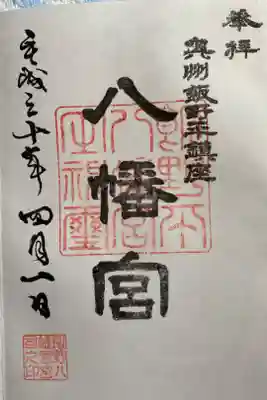 奉拝
奥州飯野平鎮座
八幡宮
平成三十年四月一日